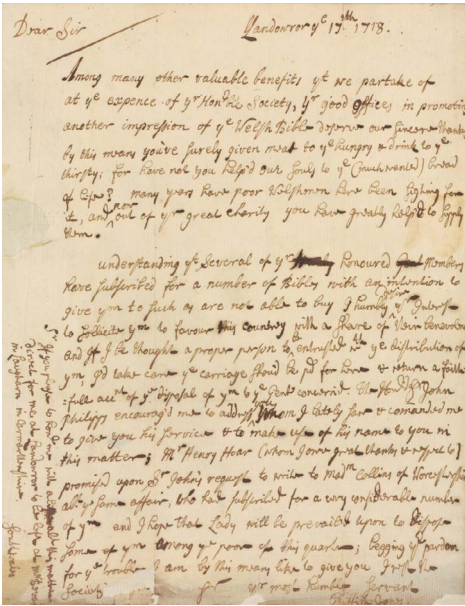 Dear Sir
Landowror yᵉ 17th 1718.
Among many other valuable benefits yt we partake of
at yᵉ expence of yr Honble Society, yr good offices in promoting
another impression of yᵉ Welsh Bible deserve our sincere thanks
by this means you've surely given meat to yᵉ hungry & drink to yᵉ
thirsty; for have not you help'd our souls to yᵉ (much wanted) bread
of life? many years have poor Welshmen here been sighing for
it, and now out of yr great charity you have greatly help'd to supply
them.
understanding yt several of yr honoured Members
have subscribed for a number of Bibles with an intention to
give ym to such as are not able to buy I humbly Interest
to sollicite ym to favour this country with a share of their Benevolence
and If I be thought a proper person to be entrusted wth yᵉ distribution of
ym, I'd take care yᵉ carriage should be pd for here & return a faith-
full acct of yᵉ disposal of ym to yᵉ Gent concern'd. The Honble Sr John
Philipps encourag'd me to address whom I lately saw & comanded me
to give you his service & to make use of his name to you in
this matter; Mr Henry Hoar (whom I owe great thanks & respect to)
promised upon Sr John's request to write to Madm Collins of
abt yᵉ same affair, who had subscribed for a very considerable number
of ym and I hope that Lady will be prevailed upon to dispose
some of ym among yᵉ poor of this quarter; begging yr pardon
for yᵉ trouble I am by this means like to give you I rest the
Society
Sir yr most humble Servant
If you please to hono me with a
direct for me at Landowror to be left at
in Laugharn in Carmarthenshire
Southwales